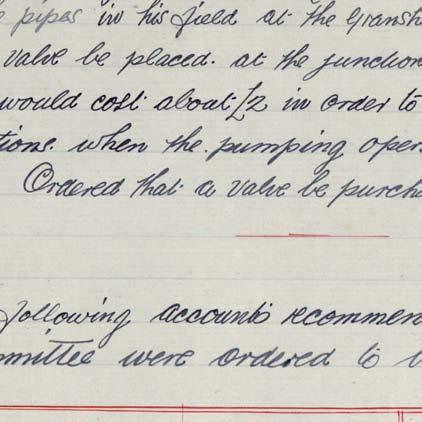 pipes in his field at the Gransh
valve be placed. at the junction
would cost about £2 in order to
tions. when the pumping oper
Ordered that a valve be purcha
following accounts recommen
mmittee were ordered to